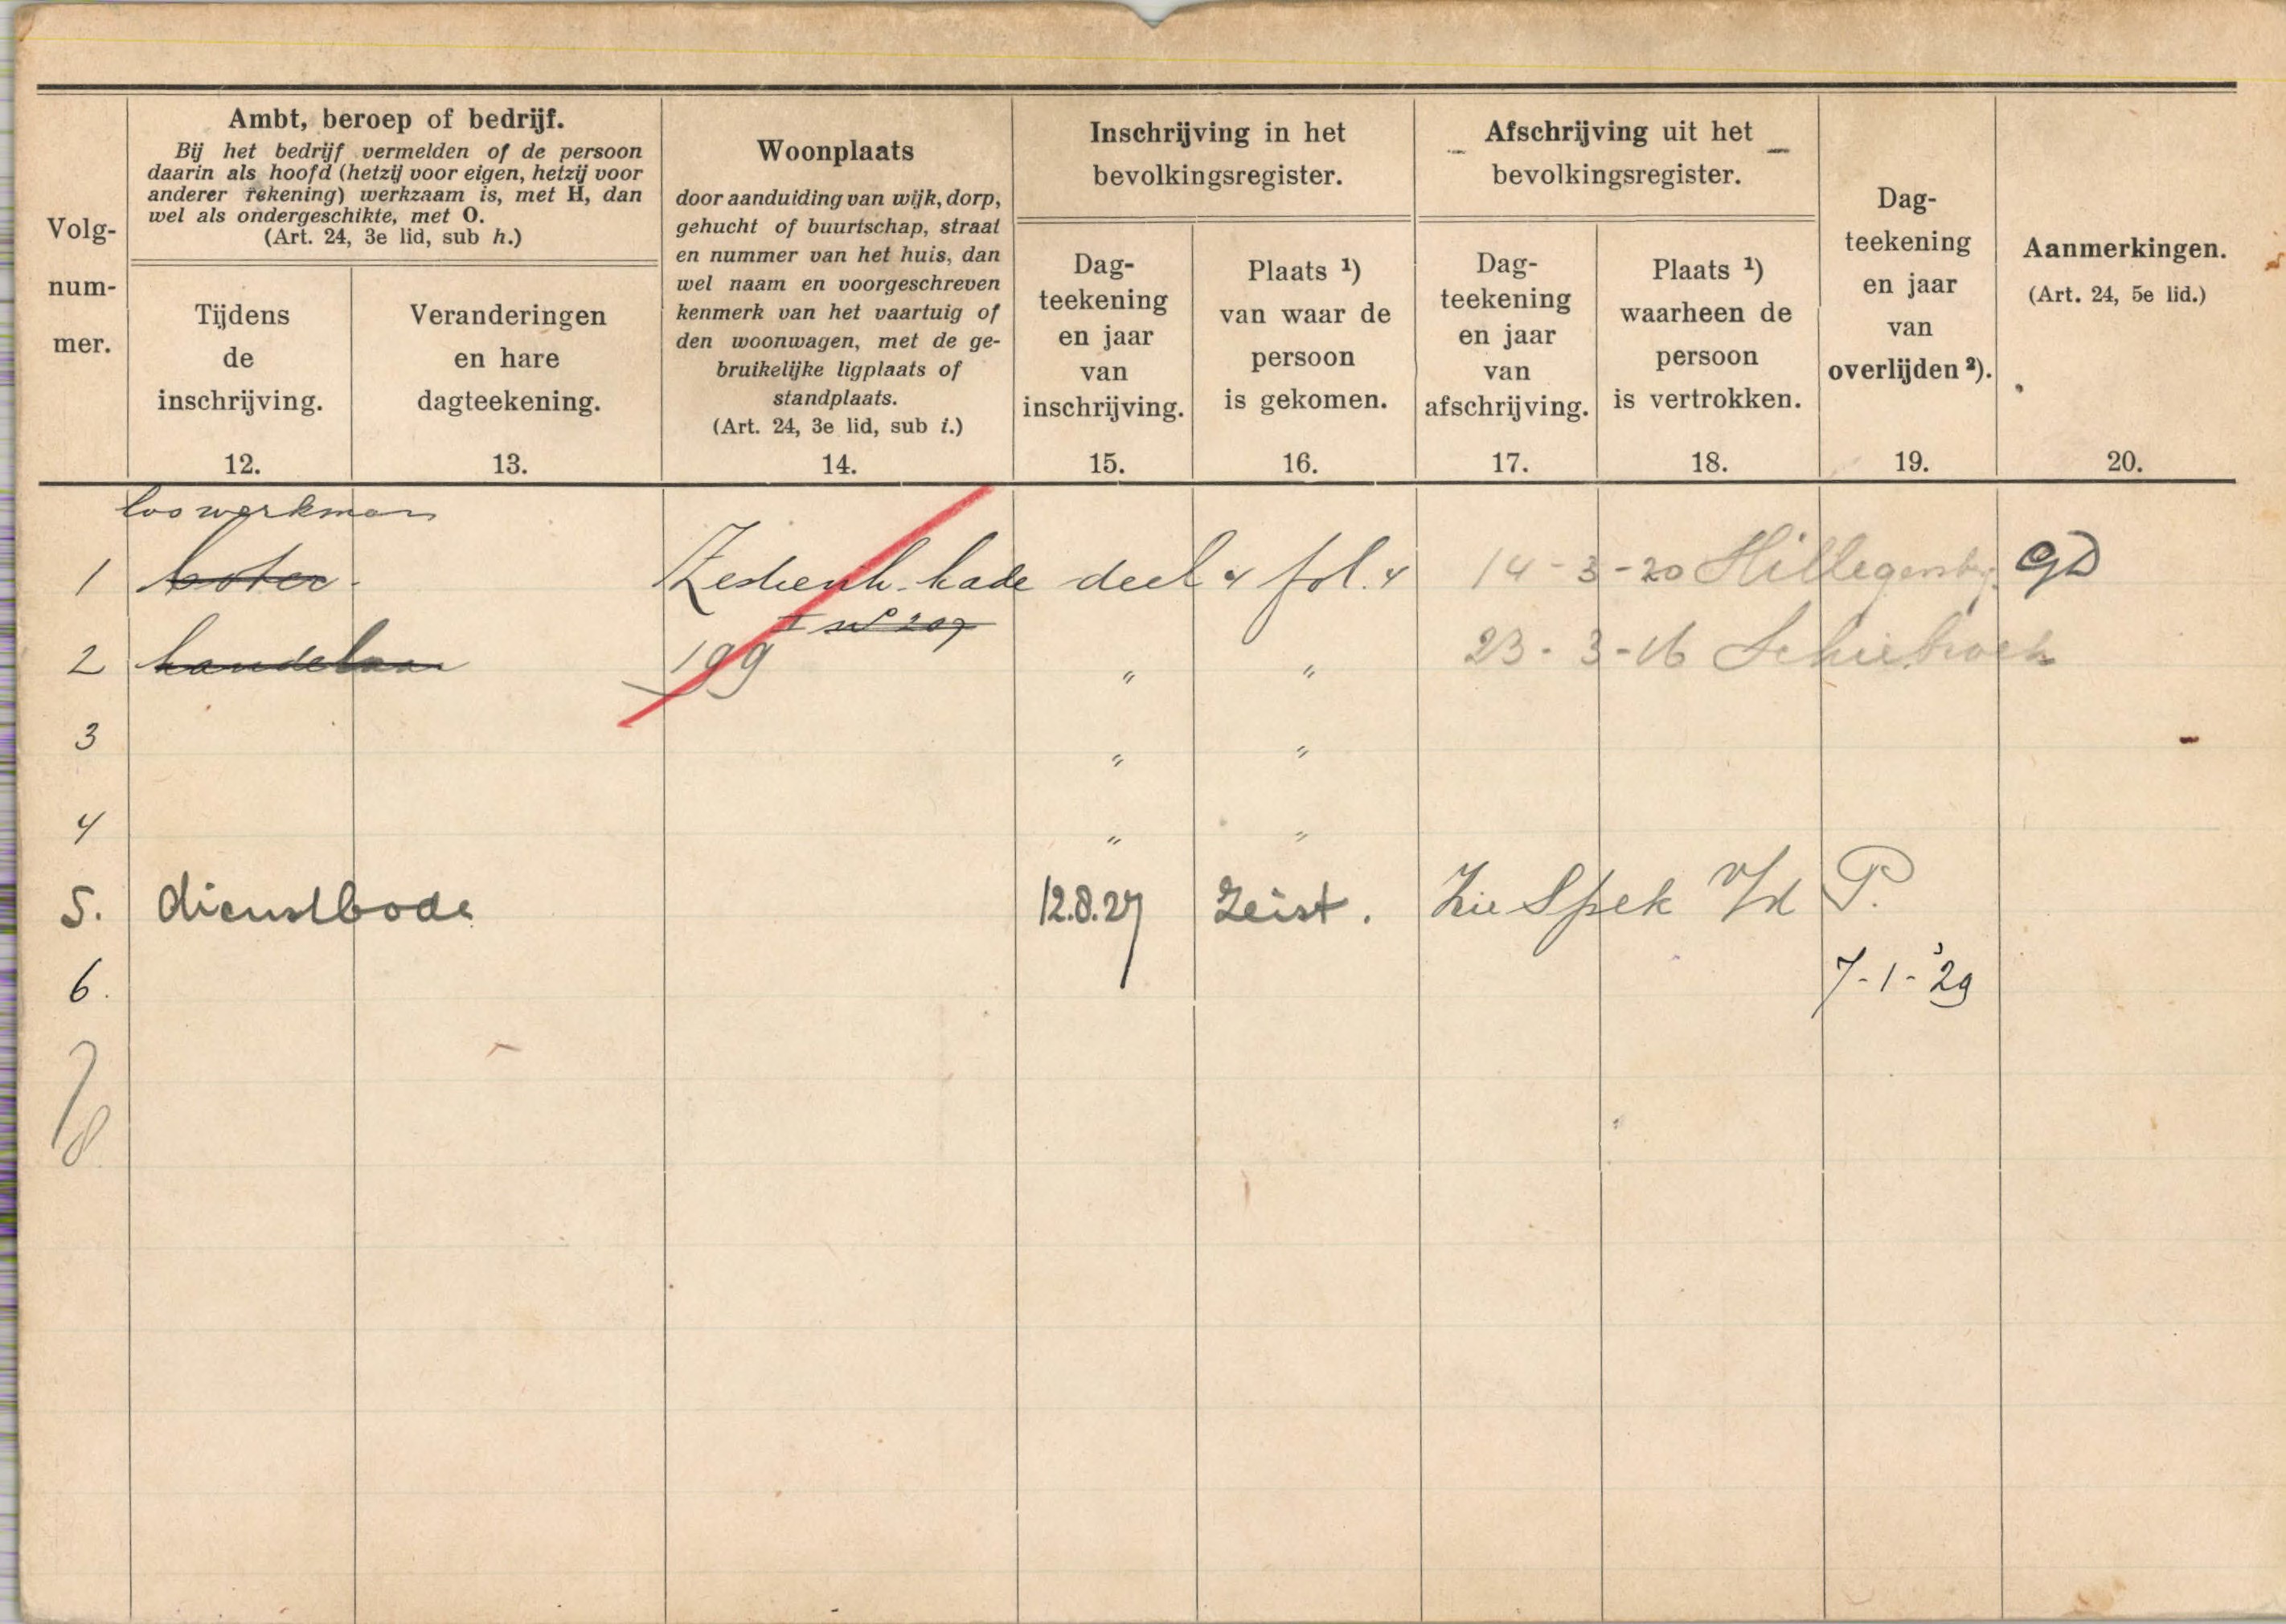 Volg-
num-
mer.
Ambt, beroep of bedrijf.
Bij het bedrijf vermelden of de persoon
daarin als hoofd (hetzij voor eigen, hetzij voor
anderer rekening) werkzaam is, met H, dan
wel als ondergeschikte, met O.
(Art. 24, 3e lid, sub h.)
Tijdens
de
inschrijving.
12.
Veranderingen
en hare
dagteekening.
13.
Woonplaats
door aanduiding van wijk, dorp,
gehucht of buurtschap, straat
en nummer van het huis, dan
wel naam en voorgeschreven
kenmerk van het vaartuig of
den woonwagen, met de ge-
bruikelijke ligplaats of
standplaats.
(Art. 24, 3e lid, sub i.)
14.
Inschrijving in het
bevolkingsregister.
Dag-
teekening
en jaar
van
inschrijving.
15.
Plaats ¹)
van waar de
persoon
is gekomen.
16.
Afschrijving uit het
bevolkingsregister.
Dag-
teekening
en jaar
van
afschrijving.
17.
Plaats ¹)
waarheen de
persoon
is vertrokken.
18.
Dag-
teekening
en jaar
van
overlijden ²).
19.
Aanmerkingen.
(Art. 24, 5e lid.)
20.
los werkman
1 boter- kade deel 4 fol. 4 14-3-20 Hillegersbg. GD
No 207
2 handelaar 199 " " 23-3-16 Schiebroek
3 " "
4 " "
5. dienstbode 12.8.27 Zeist. Zie Spek v/d P.
6. 7-1-'29
7
8